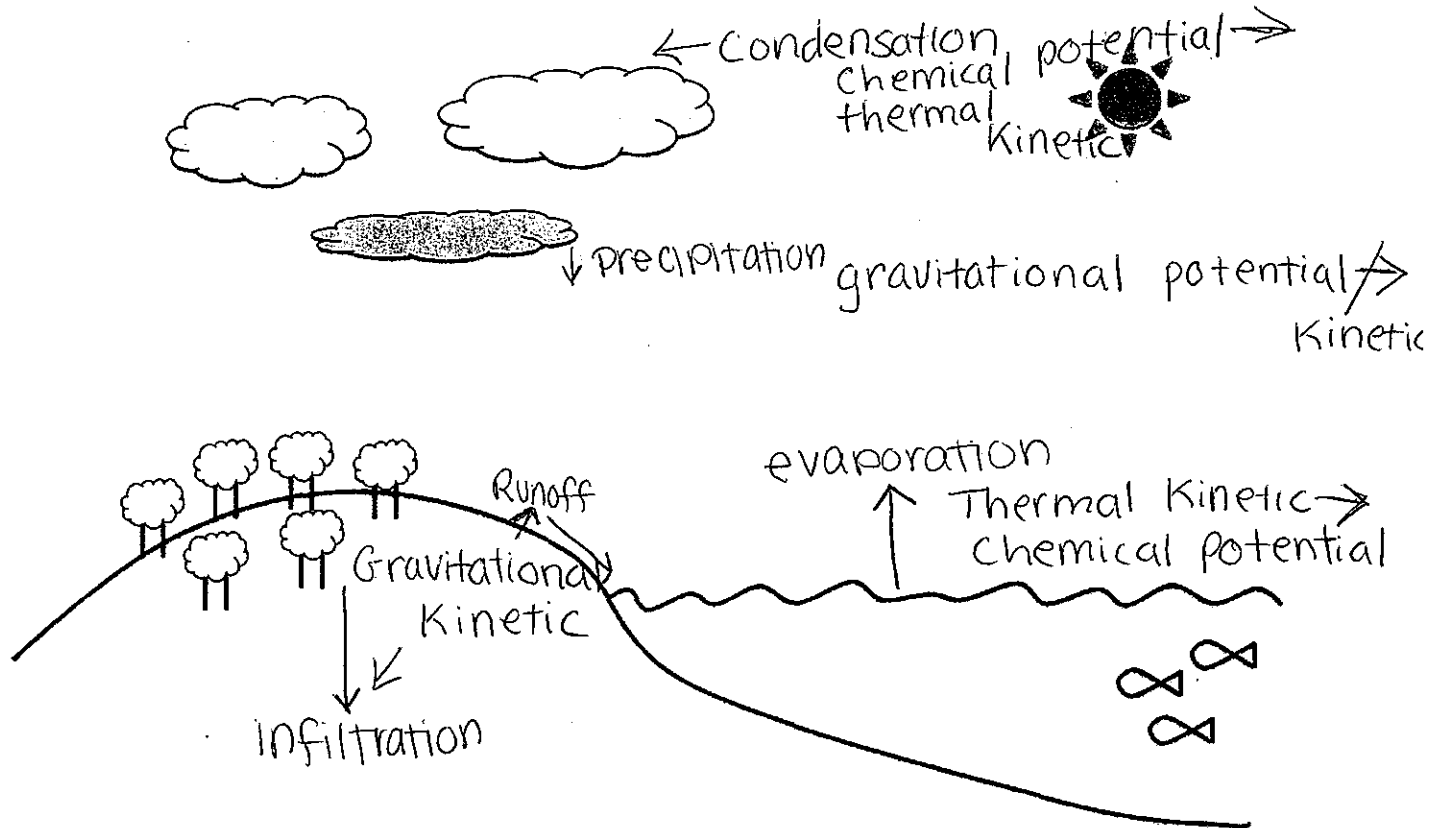 ← Condensation
Chemical potential →
thermal
Kinetic
↓ precipitation gravitational potential →
Kinetic
evaporation
Runoff
Thermal Kinetic →
Chemical potential
Gravitational
Kinetic
infiltration